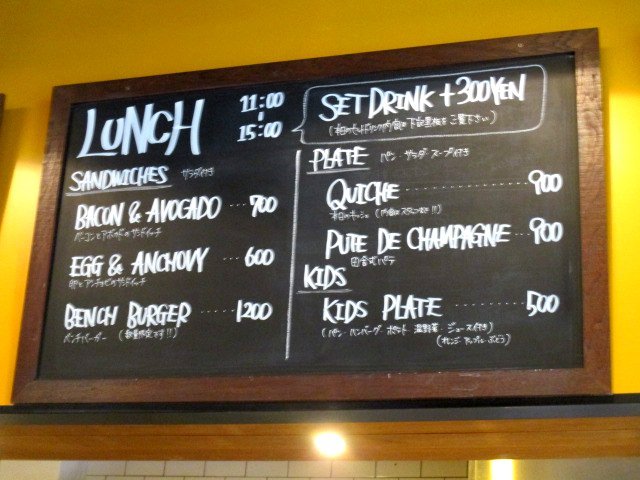 LUNCH
11:00
15:00
SET DRINK + 300YEN
SANDWICHES サラダ付き
BACON & AVOGADO ···· 700
ベーコンとアボカドのサンドイッチ
EGG & ANCHOVY ····· 600
卵とアンチョビのサンドイッチ
BENCH BURGER ········ 1200
ベンチバーガー (数量限定です!!)
PLATE パン・サラダ・スープ付き
QUICHE ················ 900
本日のキッシュ
PUTE DE CHAMPAGNE ···· 900
田舎式パテ
KIDS
KIDS PLATE ············ 500
(パン・ハンバーグ・ポテト・温野菜・ジュース付き)
(オレンジ・アップル・ぶどう)